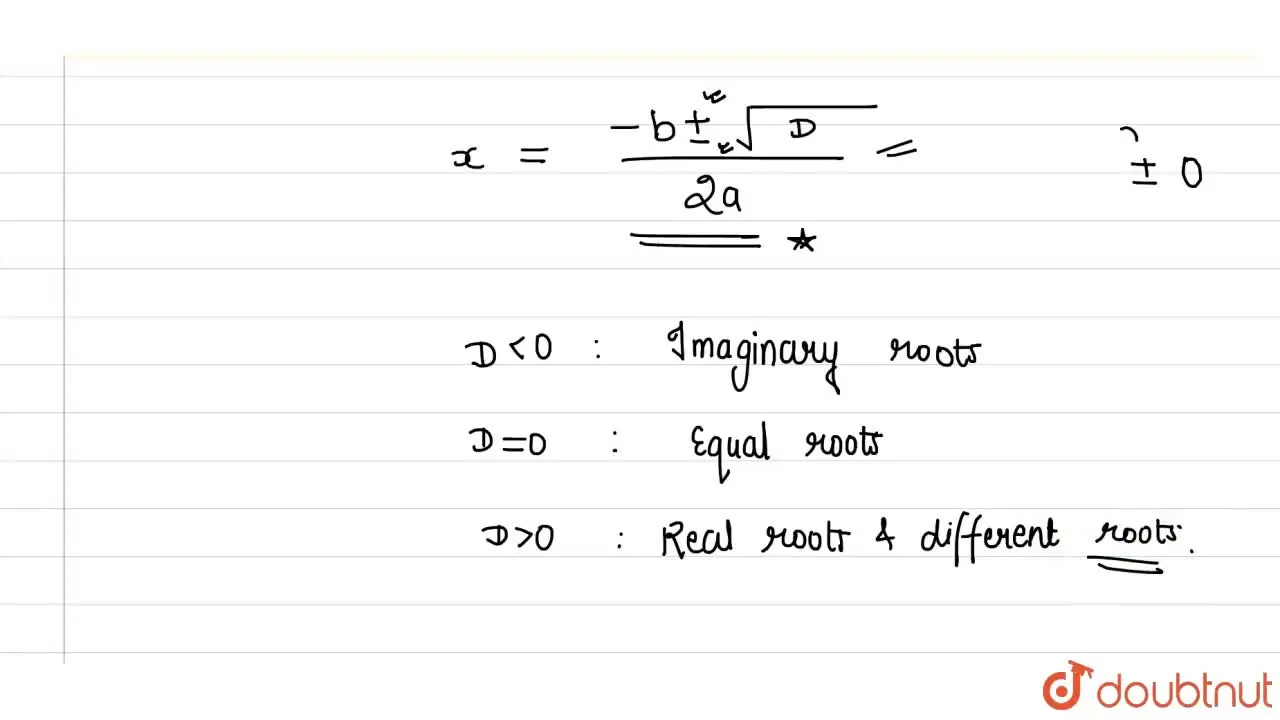 x = -b ± √D / 2a =
± 0
D < 0 : Imaginary roots
D = 0 : Equal roots
D > 0 : Real roots & different roots.
doubtnut